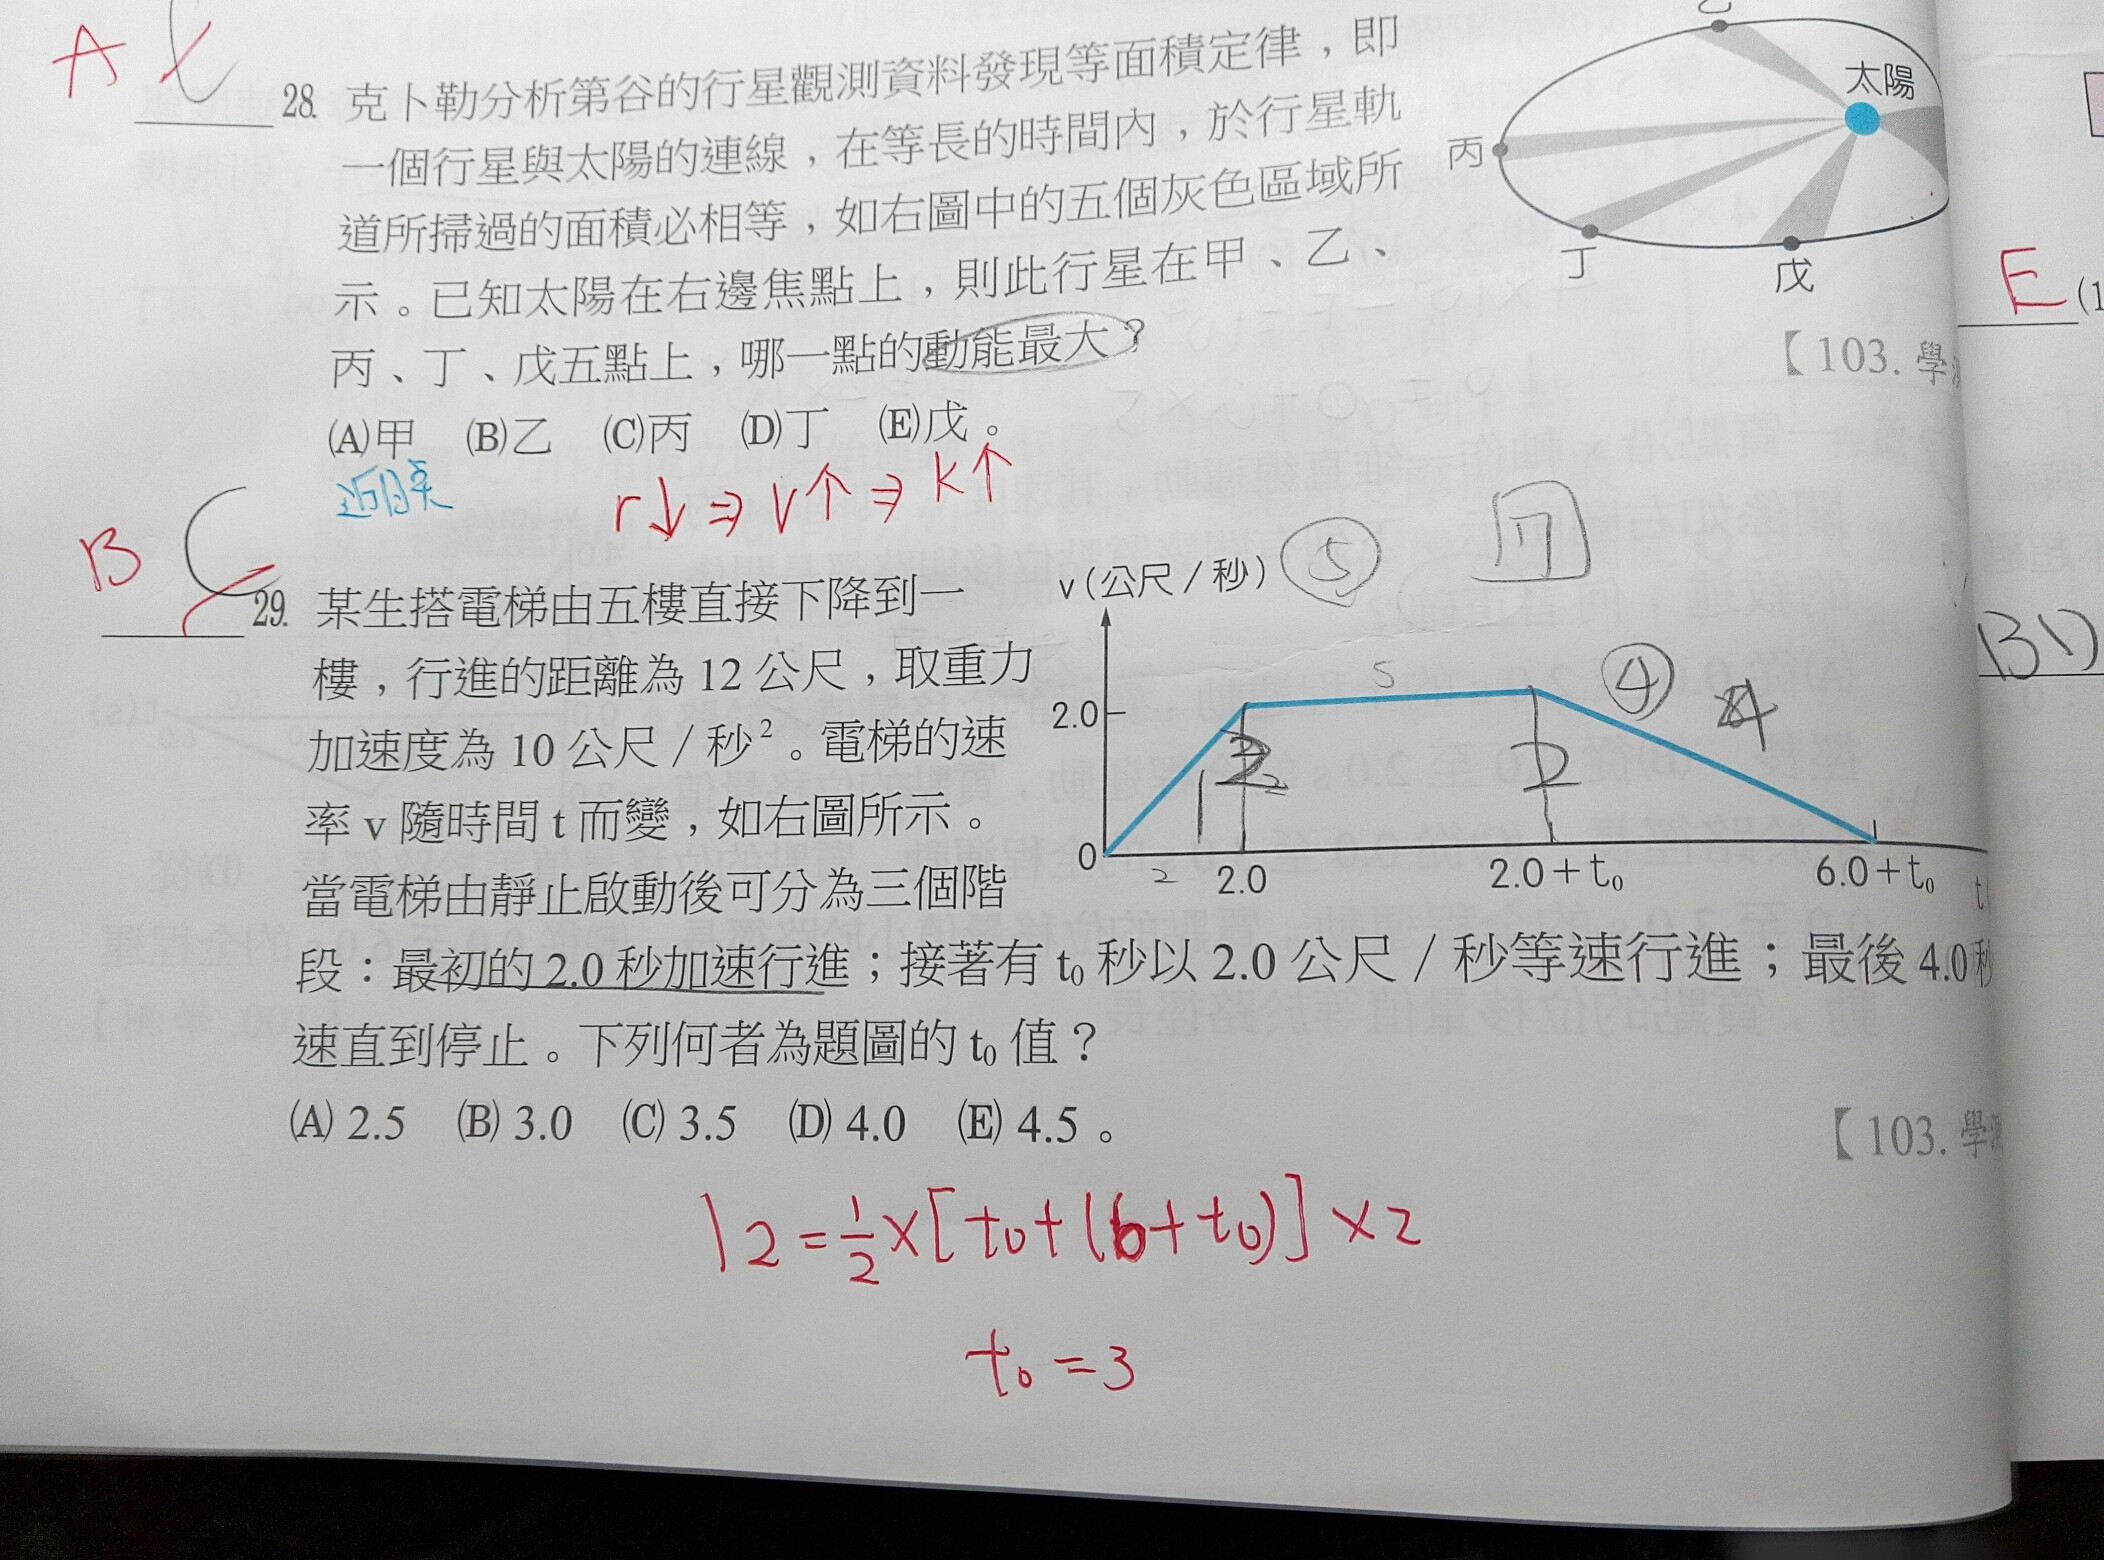 A
28. 克卜勒分析第谷的行星觀測資料發現等面積定律，即
一個行星與太陽的連線，在等長的時間內，於行星軌
道所掃過的面積必相等，如右圖中的五個灰色區域所
示。已知太陽在右邊焦點上，則此行星在甲、乙、
丙、丁、戊五點上，哪一點的動能最大？
【103. 學
(A)甲 (B)乙 (C)丙 (D)丁 (E)戊。
r↓⇒v↑⇒k↑
乙
太陽
丙
丁
戊
E
(1
B C
29. 某生搭電梯由五樓直接下降到一
樓，行進的距離為 12 公尺，取重力
加速度為 10 公尺／秒²。電梯的速
率 v 隨時間 t 而變，如右圖所示。
當電梯由靜止啟動後可分為三個階
段：最初的 2.0 秒加速行進；接著有 t₀ 秒以 2.0 公尺／秒等速行進；最後 4.0 秒
速直到停止。下列何者為題圖的 t₀ 值？
(A) 2.5 (B) 3.0 (C) 3.5 (D) 4.0 (E) 4.5。
【103. 學
v (公尺／秒)
⑤
④
4
5
2.0
2
0
2
2.0
2.0＋t₀
6.0＋t₀
t
12=½×[t₀+(6+t₀)]×2
t₀=3